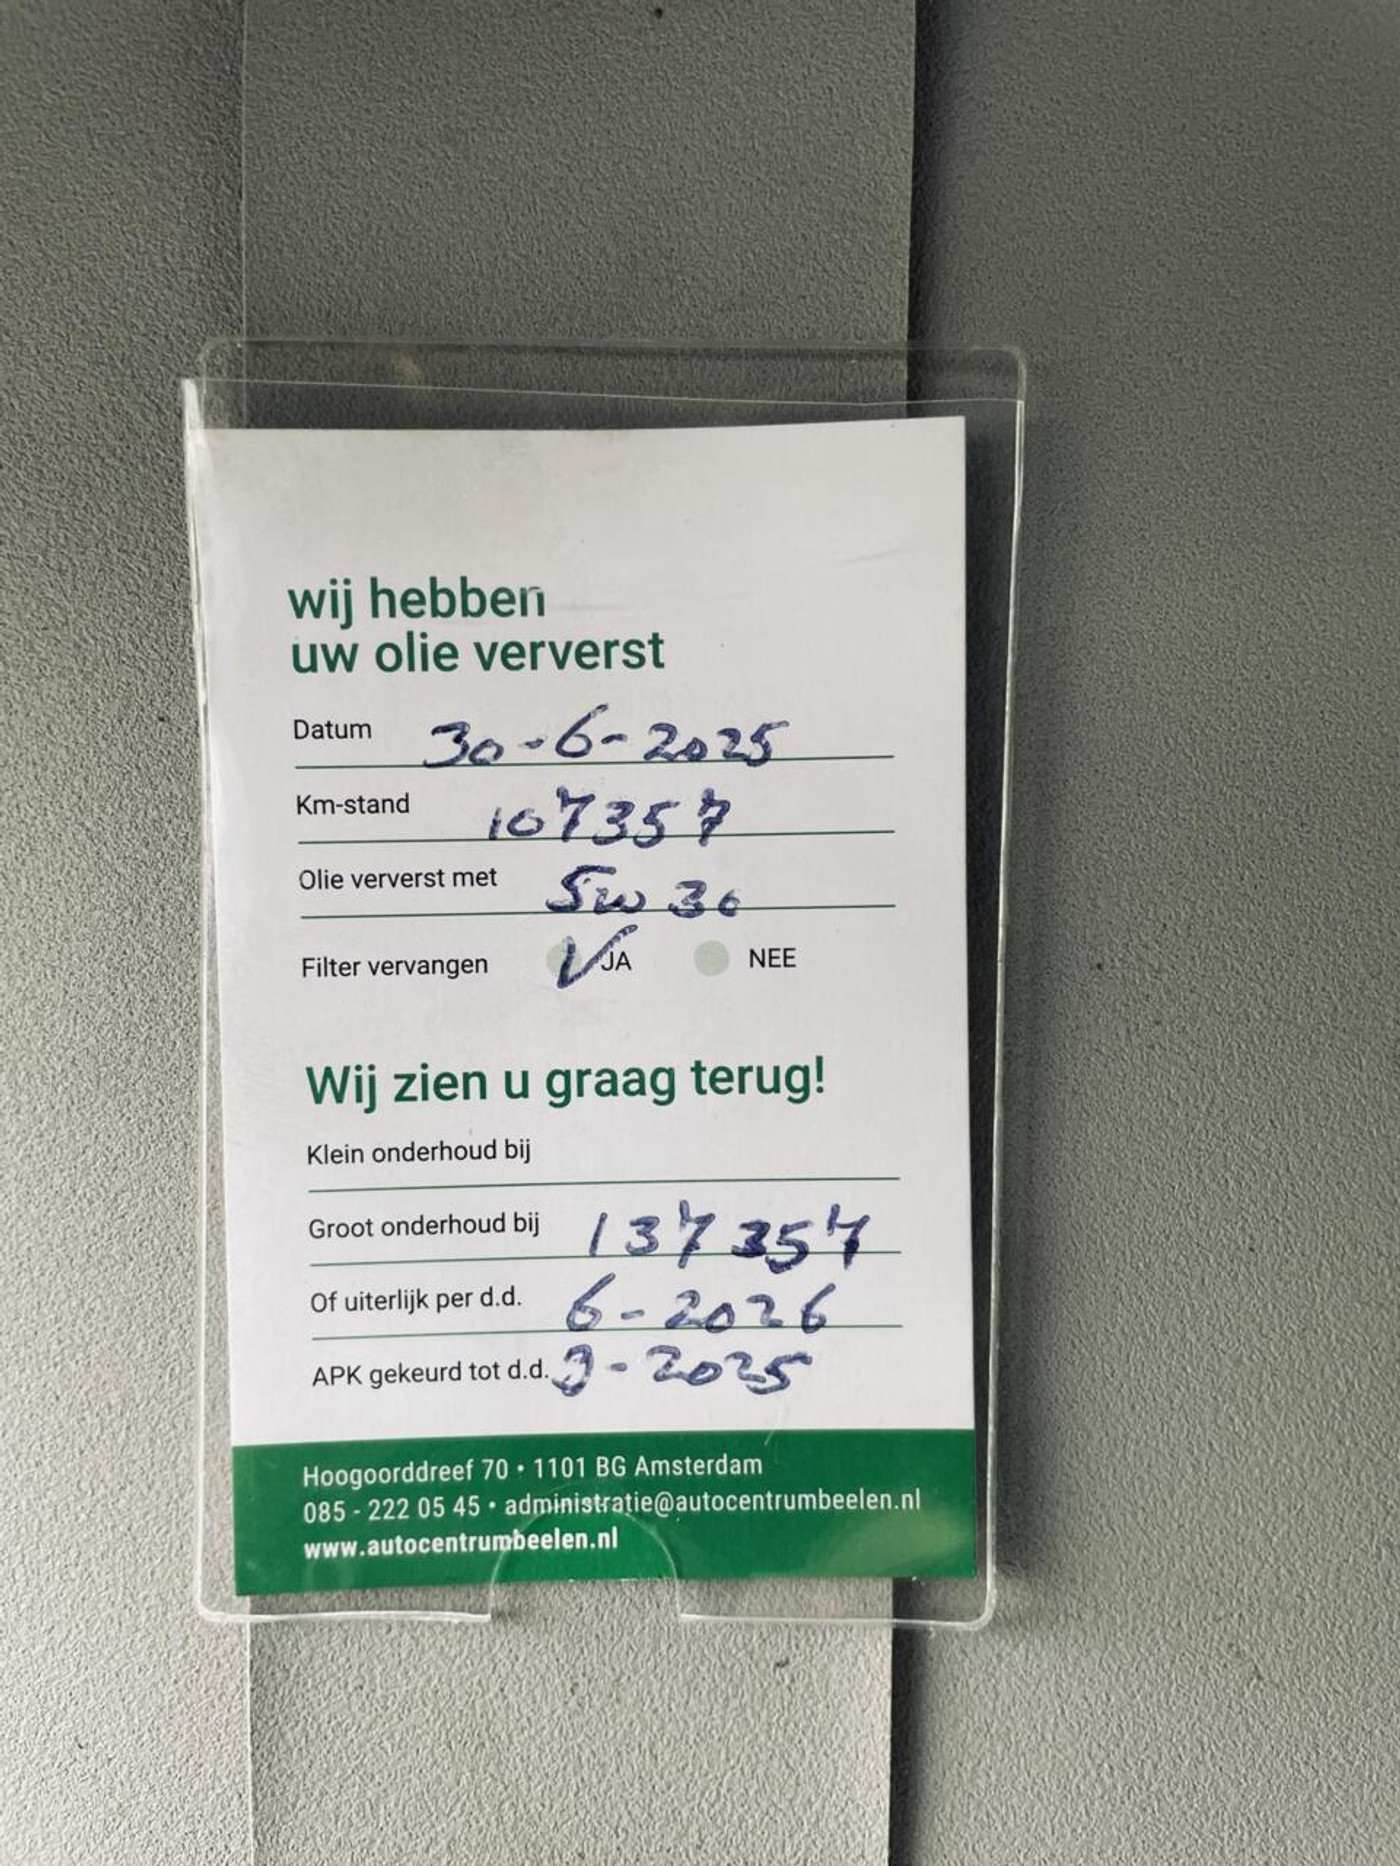 wij hebben
uw olie ververst
Datum 30-6-2025
Km-stand 107357
Olie ververst met 5w 30
Filter vervangen JA NEE
Wij zien u graag terug!
Klein onderhoud bij
Groot onderhoud bij 137 357
Of uiterlijk per d.d. 6-2026
APK gekeurd tot d.d. 9-2025
Hoogoorddreef 70 • 1101 BG Amsterdam
085 - 222 05 45 • administratie@autocentrumbeelen.nl
www.autocentrumbeelen.nl